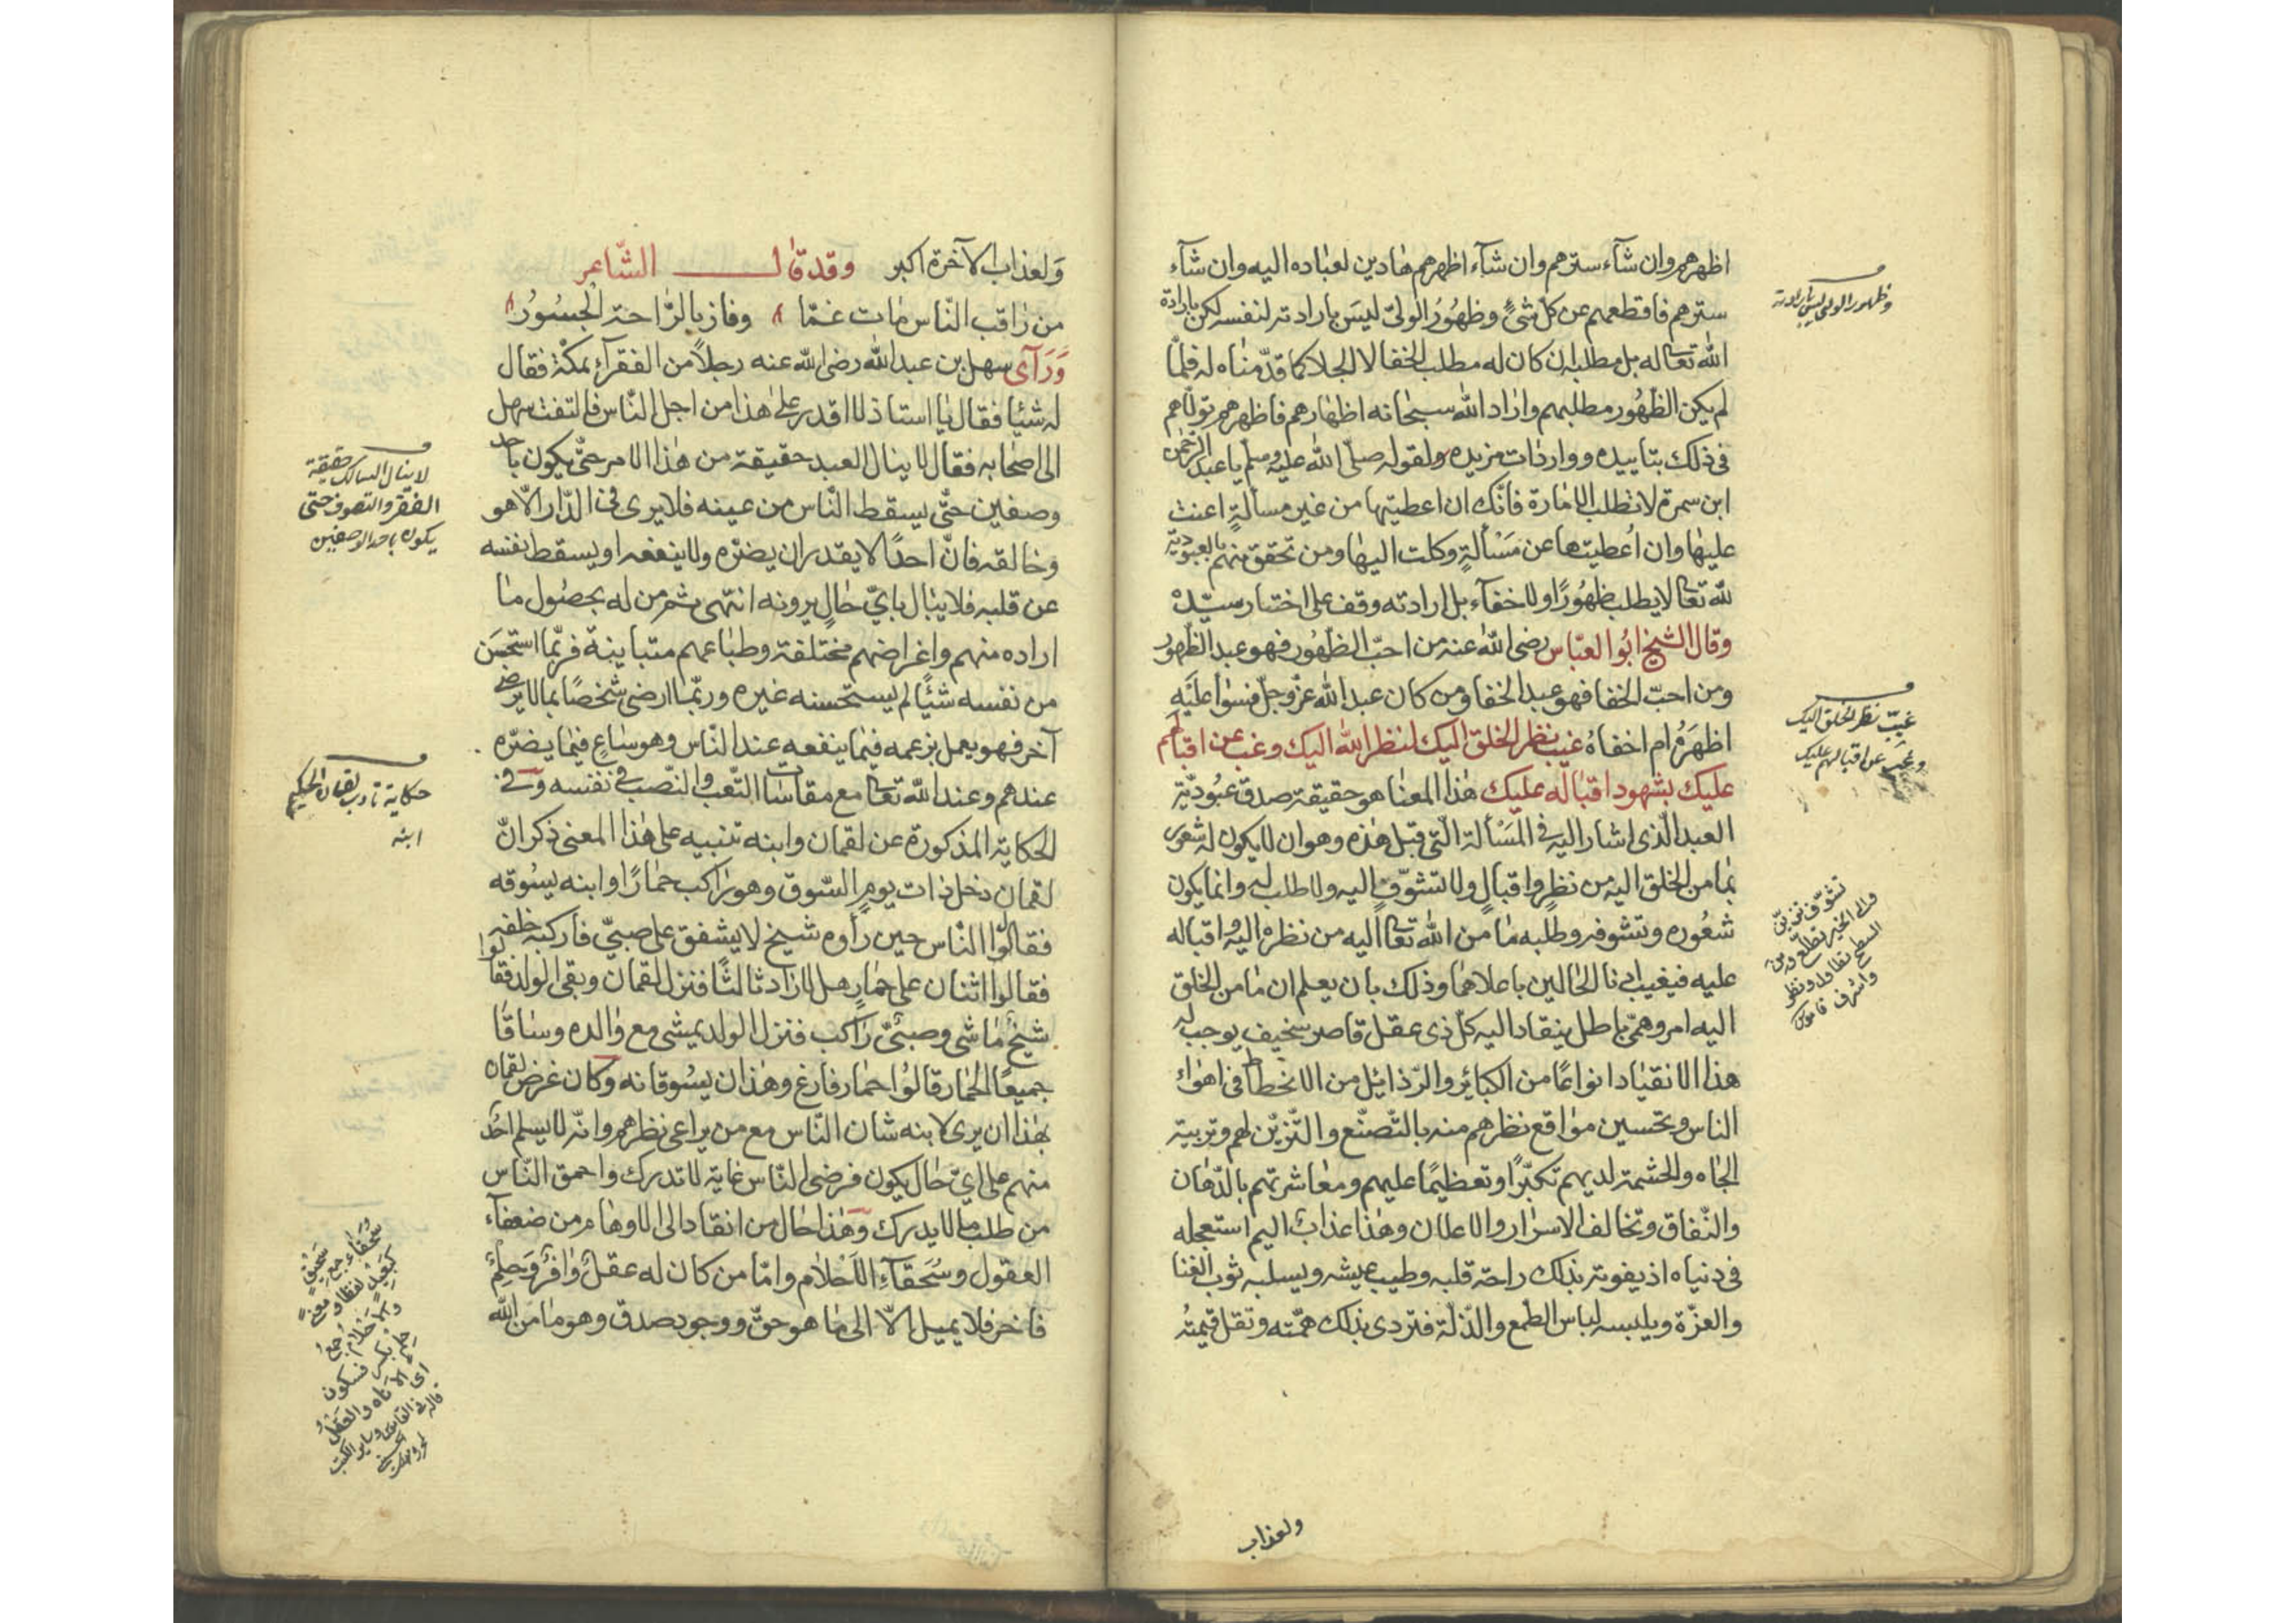 اظهرهم وان شآء سترهم وان شآء اظهرهم هادين لعباده اليه وان شآء
سترهم فاقطعهم عن كل شئ وظهور الولىّ ليس بارادته لنفسه لكن بارادة
الله تعالى له بل مطلبه ان كان له مطلب الخفا لا الجلا كما قدّمناه له فلمّا
لم يكن الظهور مطلبهم واراد الله سبحانه اظهارهم فاظهرهم تولّاهم
فى ذلك بتاييده وواردات مزيده ولقوله صلّى الله عليه وسلم يا عبد الرحمن
ابن سمرة لا تطلب الامارة فانّك ان اعطيتها من غير مسألةٍ اعنت
عليها وان اُعطيتها عن مَسْألةٍ وكلت اليها ومن تحقق منهم بالعبوديّة
لله تعالى لا يطلب ظهورًا ولا خفآء بل ارادته وقف على اختيار سيّده
وقال الشيخ ابو العبّاس رضى الله عنه من احبّ الظهور فهو عبد الظهور
ومن احبّ الخفا فهو عبد الخفا ومن كان عبد الله عزّ وجلّ فسوا عليه
اظهرهُ ام اخفاهُ غيب نظر الخلق اليك لنظر الله اليك وغب عن اقبالهم
عليك بشهود اقباله عليك هذا المعنا هو حقيقة صدق عبُوديّة
العبد الّذى اشار اليه فى المَسْألة الّتى قبل هذه وهو ان لا يكون له شعور
بما من الخلق اليه من نظرٍ واقبالٍ ولا تشوّفٍ اليه ولا طلب له وانما يكون
شعُوره وتشوفه وطلبه ما من الله تعالى اليه من نظره اليه واقباله
عليه فيغيب ادنا الحالين باعلاهما وذلك بان يعلم ان ما من الخلق
اليه امر وهمّى باطل ينقاد اليه كلّ ذى عقل قاصر سخيف يوجب له
هذا الانقياد انواعًا من الكبائر والرّذائل من الانحطاط فى اهواء
الناس وتحسين مواقع نظرهم منه بالتّصنّع والتّزيّن لهم وتربية
الجاه والحشمة لديهم تكبّرًا وتعظيمًا عليهم ومعاشرتهم بالدّهان
والنّفاق وتخالف الاسرار والاعلان وهذا عذابٌ اليم استعجله
فى دنياه اذ يفوته بذلك راحة قلبه وطيب عيشه ويسلبه ثوب الغنا
والعزّة ويلبسه لباس الطّمع والذّلّة فتردى بذلك همّته وتقل قيمتُه
ولعذاب
وظهور الولى ليس بارادته
غيّب نظر الخلق اليك
وغب عن اقبالهم عليك
تشوّف تزيّن
والى الخير تطلّع ومن
السطح تطاول ونظر
واشرف قاموس
وَلعذاب الآخرة اكبر وقد قال الشّاعر
من راقب النّاس مات غمّا وفاز بالرّاحة الجسُورُ
وَرَآى سهل بن عبد الله رضى الله عنه رجلاً من الفقرآء بمكة فقال
له شيئا فقال يا استاذ لا اقدر على هذا من اجل النّاس فالتفت سهل
الى اصحابه فقال لا ينال العبد حقيقة من هذا الامر حتّى يكون باحد
وصفين حتّى يسقط النّاس من عينه فلا يرى فى الدّار الّا هو
وخالقه فانّ احدًا لا يقدر ان يضرّه ولا ينفعه او يسقط نفسه
عن قلبه فلا يبال بايّ حالٍ يرونه انتهى ثم من له بحصُول ما
اراده منهم واغراضهم مختلفة وطباعهم متباينة فربّما استحسَن
من نفسه شيًّا لم يستحسنه غيره وربّما ارضى شخصًا بما لا يرضى
آخر فهو يعمل بزعمه فيما ينفعه عند النّاس وهو ساعٍ فيما يضرّه
عندهم وعند الله تعالى مع مقاسات التّعب والنّصب فى نفسه وفى
الحكاية المذكورة عن لقمان وابنه تنبيه على هذا المعنى ذكر انّ
لقمان دخل ذات يومٍ السّوق وهو راكب حمارًا وابنه يسُوقه
فقالُوا النّاس حين رأوه شيخ لا يشفق على صبىّ فاركبه خلفه
فقالوا اثنان على حمارٍ هل لا زاد ثالثًا فنزل لقمان وبقى الولد فقالوا
شيخ ماشى وصبىّ راكب فنزل الولد يمشى مع والده وساقا
جميعًا الحمار قالُوا حمار فارغ وهذان يسُوقانه وكان غرض لقمان
بهذا ان يرى لابنه شان النّاس مع من يراعى نظرهم وانّه لا يسلم احد
منهم على اىّ حال يكون فرضى النّاس غاية لا تدرك واحمق النّاس
من طلب ما لا يدرك وهذا حال من انقاد الى الاوهام من ضعفآء
العقول وسُخقآء الاَحْلام وامّا من كان له عقلٌ وافرٌ وَحِلمٌ
فاخر فلا يميل الّا الى ما هو حقّ ووجود صدق وهو ما من الله
لا ينال السالك حقيقة
الفقر والتصوف حتى
يكون باحد الوصفين
حكاية تاديب لقمان الحكيم
ابنه
سُخَفاء جمع سَخيْف
كبَعِيْدٍ لفظا ومعنىً
والاَحْلامُ جمعُ
حِلم بكسر فسكون
اى الاناه والعقلُ